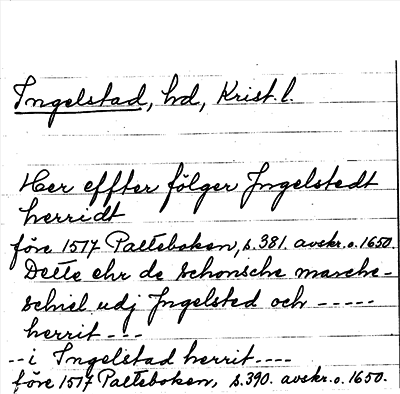 Ingelstad, hd, Krist. l.
Her effter fölger Jngelstedt
herridt
före 1517 Palteboken, s. 381. avskr. o. 1650.
Dette ehr de Schonsche marche-
schiel udj Jngelsted och -----
herrit ---
-- i Ingelstad herrit ----
före 1517 Palteboken, s. 390. avskr. o. 1650.